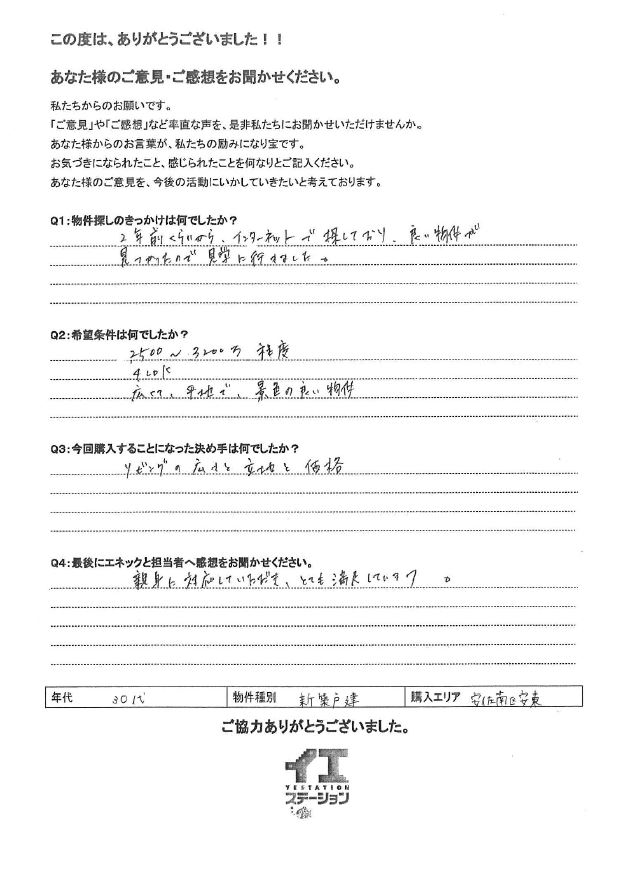 この度は、ありがとうございました！！
あなた様のご意見・ご感想をお聞かせください。
私たちからのお願いです。
「ご意見」や「ご感想」など率直な声を、是非私たちにお聞かせいただけませんか。
あなた様からのお言葉が、私たちの励みになり宝です。
お気づきになられたこと、感じられたことを何なりとご記入ください。
あなた様のご意見を、今後の活動にいかしていきたいと考えております。
Q1：物件探しのきっかけは何でしたか？
2年前くらいから、インターネットで探しており、良い物件が
見つかったので見学に行きました。
Q2：希望条件は何でしたか？
2500～3200万 程度
4LDK
広くて、平地で、景色の良い物件
Q3：今回購入することになった決め手は何でしたか？
リビングの広さと立地と価格
Q4：最後にエネックと担当者へ感想をお聞かせください。
親身に対応していただき、とても満足しています。
年代 30代 物件種別 新築戸建 購入エリア 安佐南区安東
ご協力ありがとうございました。
イエ
YESTATION
ステーション